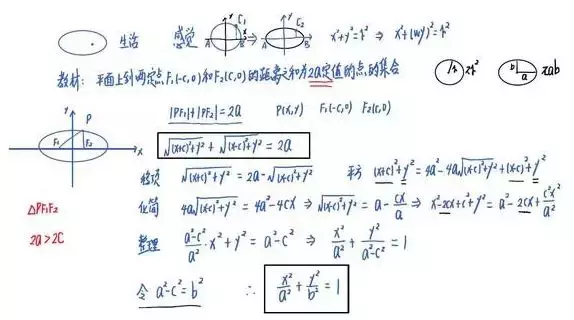 生活 感觉 ⇒ x²+y²=r² ⇒ x²+(wy)²=r²
教材: 平面上到两定点F₁(-c,0)和F₂(c,0)的距离之和为2a定值的点的集合 πr² πab
|PF₁|+|PF₂|=2a P(x,y) F₁(-c,0) F₂(c,0)
√(x+c)²+y² + √(x-c)²+y² = 2a
移项 √(x+c)²+y² = 2a-√(x-c)²+y² 平方 (x+c)²+y²=4a²-4a√(x-c)²+y²+(x-c)²+y²
化简 4a√(x-c)²+y² = 4a²-4cx ⇒ √(x-c)²+y² = a-cx/a ⇒ x²-2cx+c²+y² = a²-2cx+c²x²/a²
△PF₁F₂
2a>2c
整理 a²-c²/a²·x²+y²=a²-c² ⇒ x²/a²+y²/a²-c²=1
令 a²-c²=b² ∴ x²/a²+y²/b²=1
y P F₁ F₂ x
A B C₁ y x
A B C₂ y
r b a